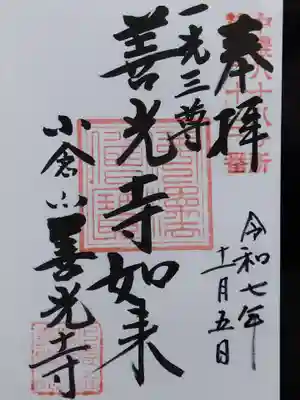 奉拝
一光三尊
善光寺如来
小倉山善光寺
令和七年
十一月五日